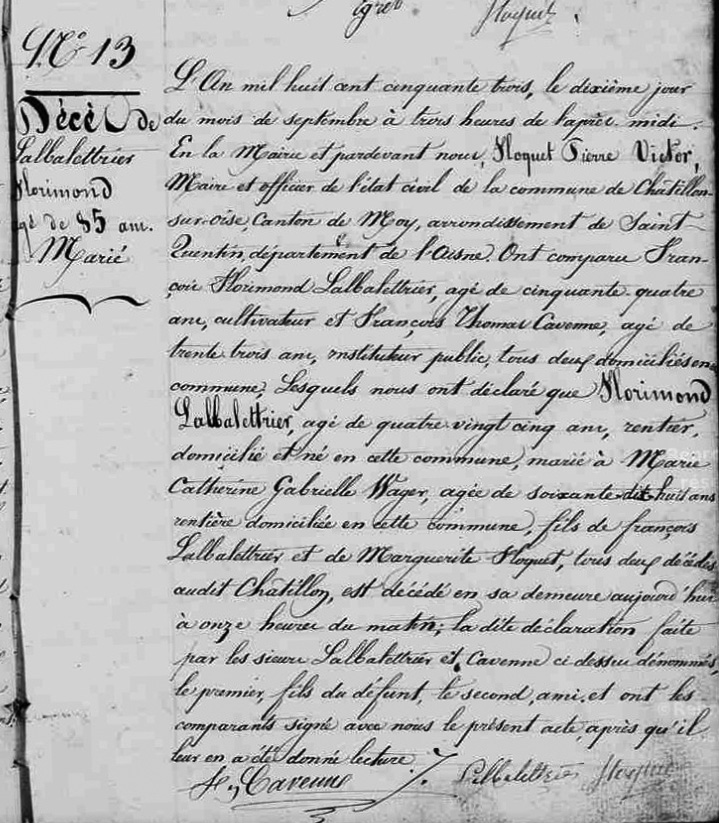 Floquet
N° 13
Décès de
Lalbalettrier
Florimond
agé de 85 ans.
Marié
L'An mil huit cent cinquante trois, le dixième jour
du mois de septembre à trois heures de l'après-midi.
En la Mairie et pardevant nous, Floquet Pierre Victor,
Maire et officier de l'état civil de la commune de Chatillon-
sur-oise, Canton de Moy, arrondissement de Saint-
Quentin, département de l'Aisne. Ont comparu Fran-
çois Florimond Lalbalettrier, agé de cinquante-quatre
ans, cultivateur et François Thomas Cavenne, agé de
trente trois ans, instituteur public, tous deux domiciliés en
commune, Lesquels nous ont déclaré que Florimond
Lalbalettrier, agé de quatre vingt cinq ans, rentier,
domicilié et né en cette commune, marié à Marie
Catherine Gabrielle Wager, agée de soixante-dix-huit ans
rentière domiciliée en cette commune, fils de françois
Lalbalettrier et de Marguerite Floquet, tous deux décédés
audit Chatillon, est décédé en sa demeure aujourd'hui
à onze heures du matin; la dite déclaration faite
par les sieurs Lalbalettrier et Cavenne ci-dessus dénommés,
le premier, fils du défunt, le second, ami. et ont les
comparants signé avec nous le présent acte, après qu'il
leur en a été donné lecture ./.
Cavenne Lalbalettrier Floquet